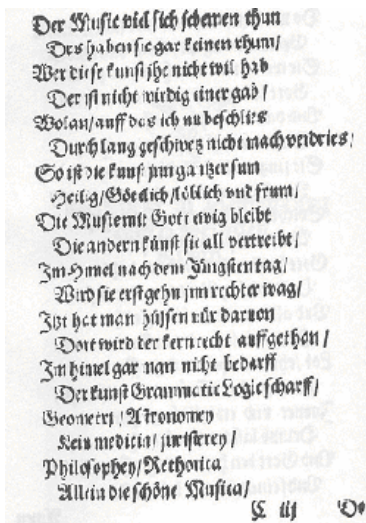 Der Music viel sich schemen thun
Des haben sie gar keinen rhum/
Wer diese kunst jhe nicht wil hab
Der ist nicht wirdig einer gab/
Wolan/auff das ich nu beschlies
Durch lang geschwetz nicht mach verdries/
So ist die kunst jnn gantzer sum
Heilig/Göttlich/löblich vnd frum/
Die Music mit Gott ewig bleibt
Die andern künst sie all vertreibt/
Im Himel nach dem Jüngsten tag/
Wird sie erst gehn jnn rechter wag/
Itzt hat man hülsen nür daruon
Dort wird der kern recht auffgethan/
Im himel gar man nicht bedarff
Der kunst Grammatic Logic scharff/
Geometri/Astronomey
Kein medicin/juristerey/
Philosophey/Rethorica
Allein die schöne Musica/
C iij De